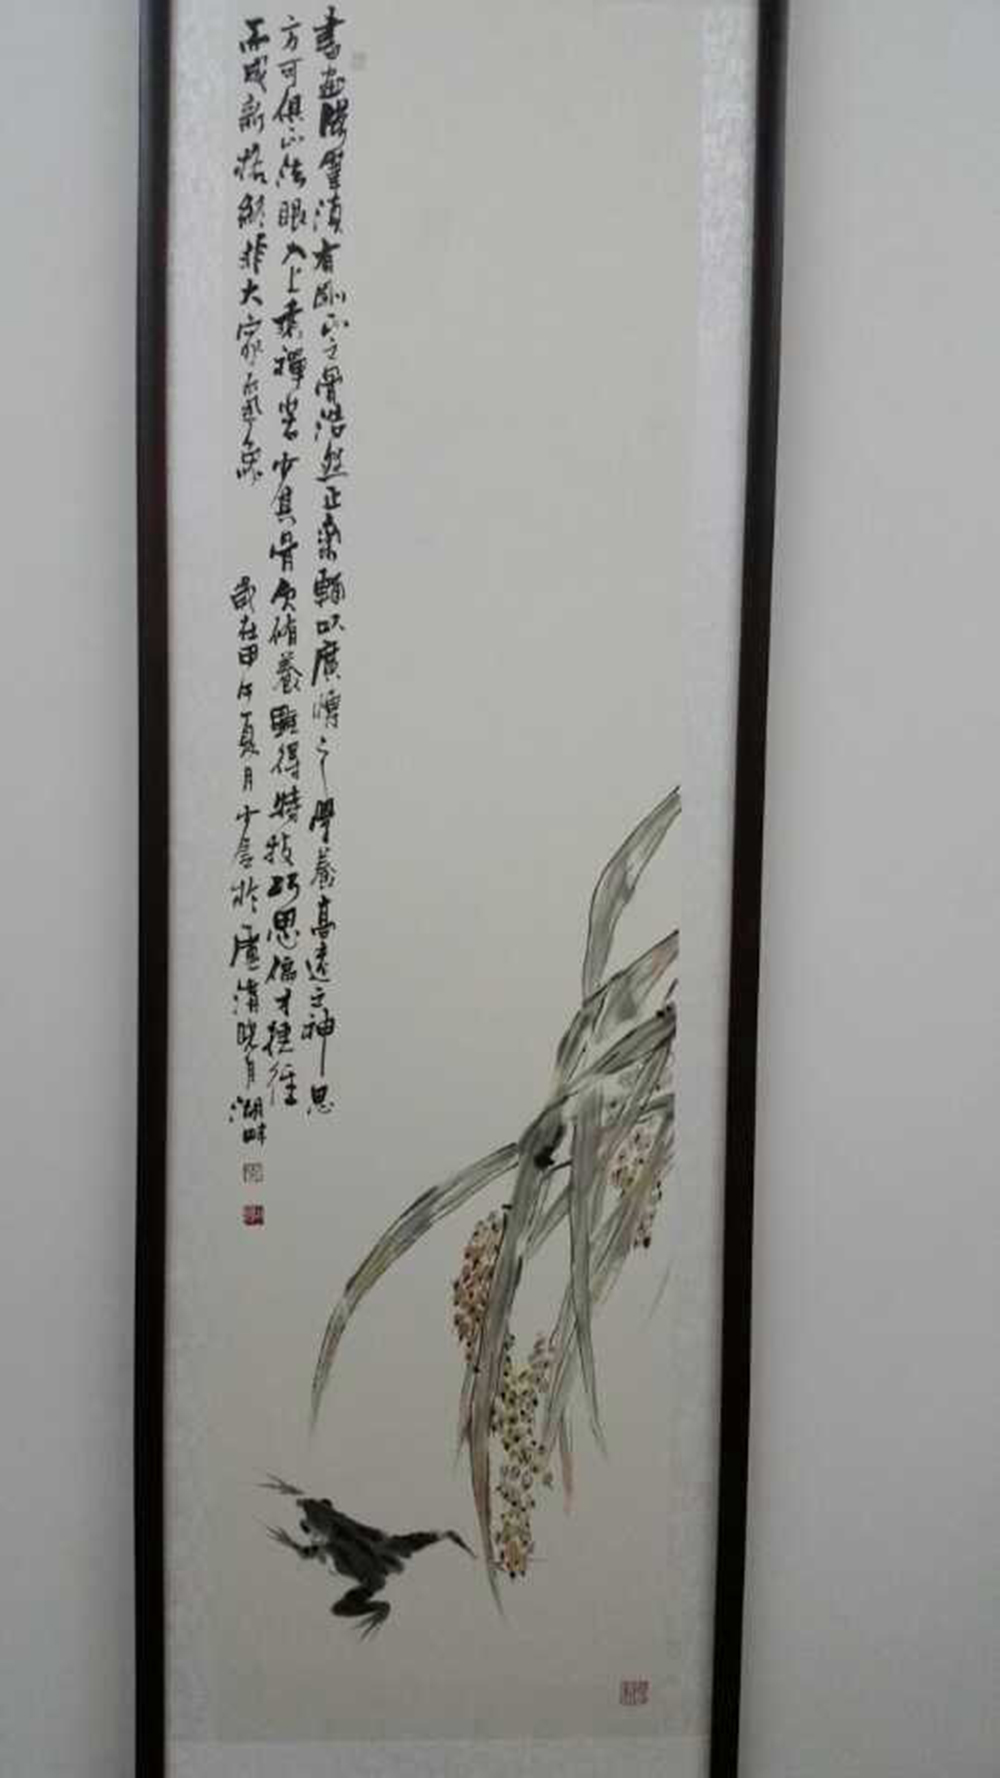 書画隆筆須有剛正之骨浩然正氣輔以廣博之學養高遠之神思
方可俱正法眼入上乘禪若少具骨氣脩養雖得特技巧思偏才捷徑
而成新格終非大家氣象
歲在甲午夏月少石於廬清晓月湖畔